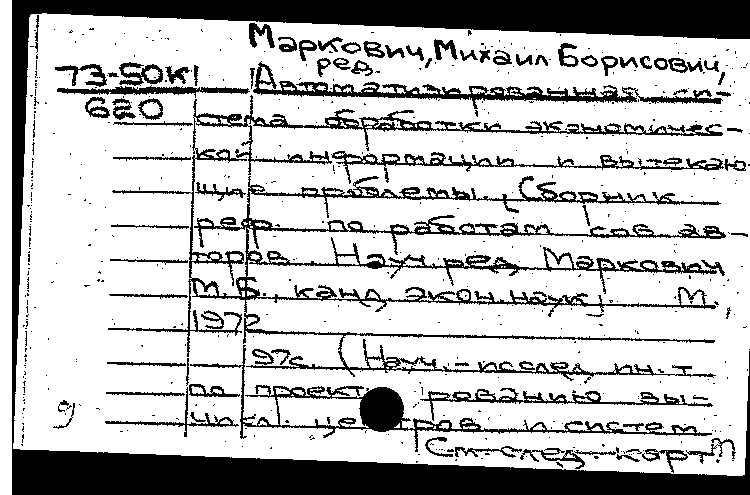 Маркович, Михаил Борисович,
ред.
73-50К Автоматизированная си-
620 стема обработки экономичес-
кой информации и вытекаю-
щие проблемы. [Сборник
реф. по работам сов. ав-
торов. Науч. ред. Маркович
М.Б., канд. экон. наук]. М.,
1972
97с. (Науч.-исслед. ин-т
по проект рованию вы-
числ. це тров и систем
См. след. карт.